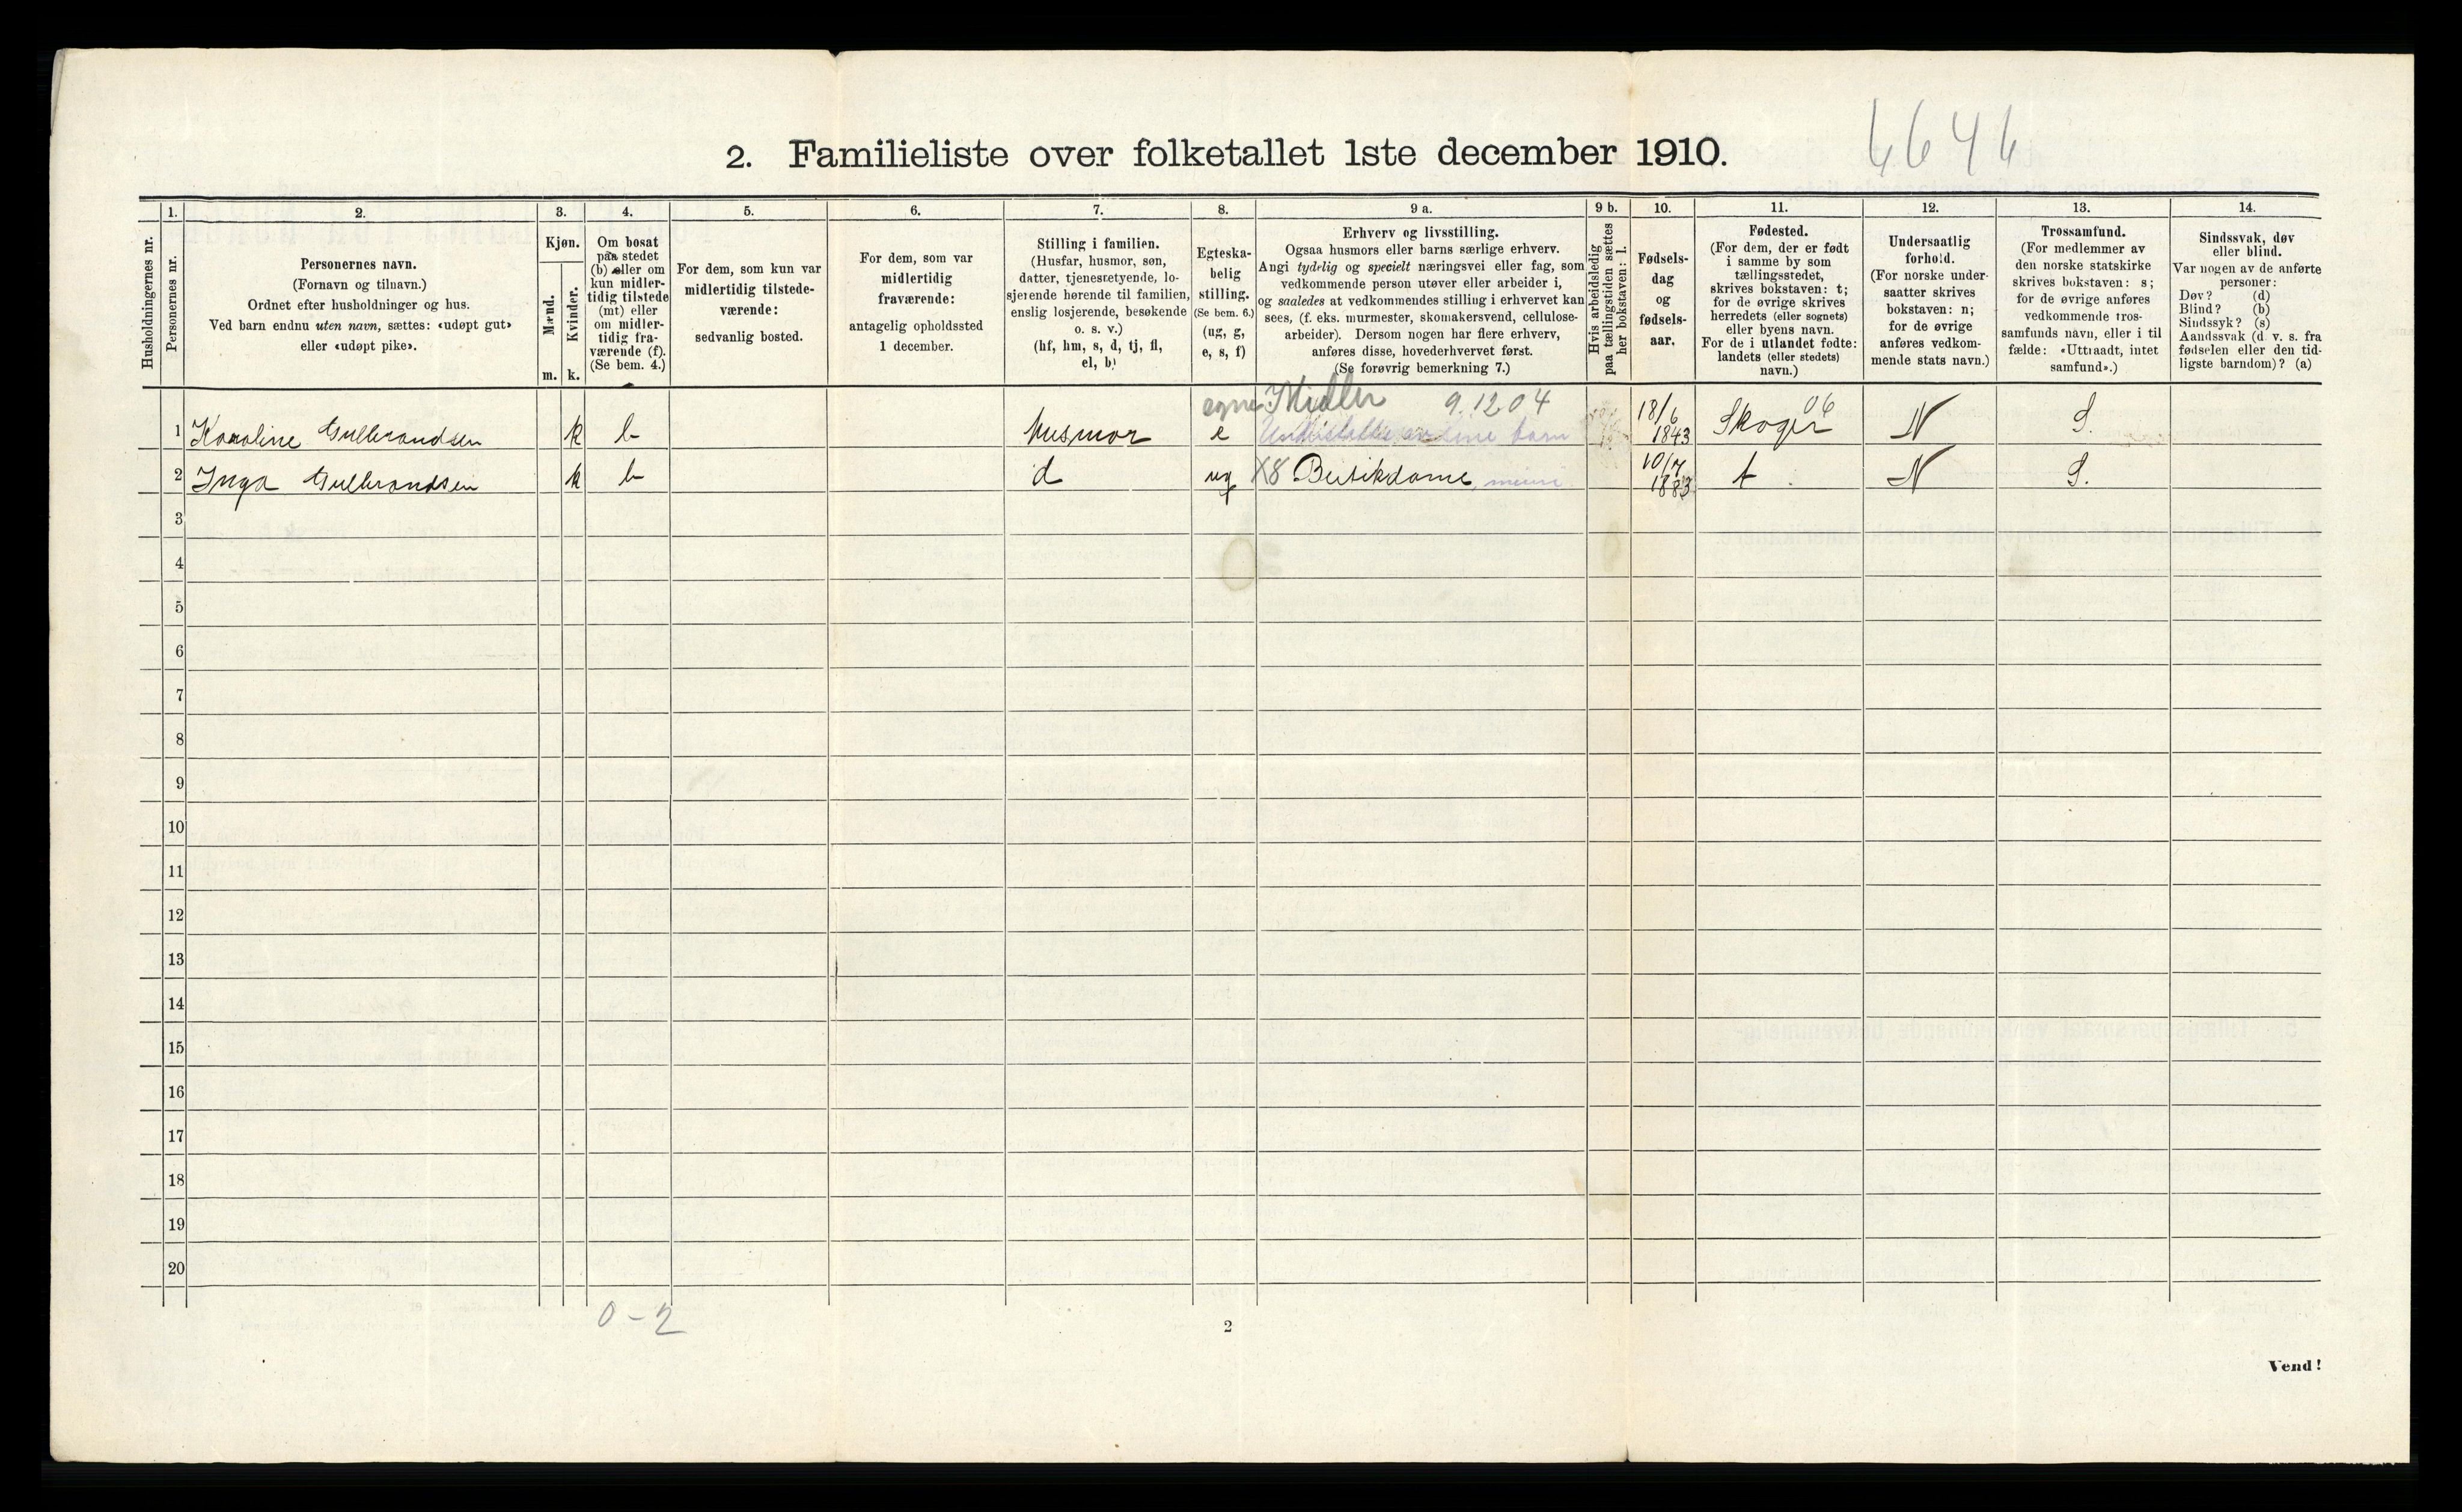 6646
2. Familieliste over folketallet 1ste december 1910.
1. 2. 3. 4. 5. 6. 7. 8. 9 a. 9 b. 10. 11. 12. 13. 14.
Husholdningernes nr.
Personernes nr.
Personernes navn.
(Fornavn og tilnavn.)
Ordnet efter husholdninger og hus.
Ved barn endnu uten navn, sættes: «udøpt gut»
eller «udøpt pike».
Kjøn.
Mænd.
Kvinder.
m. k.
Om bosat
paa stedet
(b) eller om
kun midler-
tidig tilstede
(mt) eller
om midler-
tidig fra-
værende (f).
(Se bem. 4.)
For dem, som kun var
midlertidig tilstede-
værende:
sedvanlig bosted.
For dem, som var
midlertidig
fraværende:
antagelig opholdssted
1 december.
Stilling i familien.
(Husfar, husmor, søn,
datter, tjenestetyende, lo-
sjerende hørende til familien,
enslig losjerende, besøkende
o. s. v.)
(hf, hm, s, d, tj, fl,
el, b)
Egteska-
belig
stilling.
(Se bem. 6.)
(ug, g,
e, s, f)
Erhverv og livsstilling.
Ogsaa husmors eller barns særlige erhverv.
Angi tydelig og specielt næringsvei eller fag, som
vedkommende person utøver eller arbeider i,
og saaledes at vedkommendes stilling i erhvervet kan
sees, (f. eks. murmester, skomakersvend, cellulose-
arbeider). Dersom nogen har flere erhverv,
anføres disse, hovederhvervet først.
(Se forøvrig bemerkning 7.)
Hvis arbeidsledig
paa tællingstiden sættes
her bokstaven: l.
Fødsels-
dag
og
fødsels-
aar.
Fødested.
(For dem, der er født
i samme by som
tællingsstedet,
skrives bokstaven: t;
for de øvrige skrives
herredets (eller sognets)
eller byens navn.
For de i utlandet fødte:
landets (eller stedets)
navn.)
Undersaatlig
forhold.
(For norske under-
saatter skrives
bokstaven: n;
for de øvrige
anføres vedkom-
mende stats navn.)
Trossamfund.
(For medlemmer av
den norske statskirke
skrives bokstaven: s;
for de øvrige anføres
vedkommende tros-
samfunds navn, eller i til
fælde: «Uttraadt, intet
samfund».)
Sindssvak, døv
eller blind.
Var nogen av de anførte
personer:
Døv? (d)
Blind? (b)
Sindssyk? (s)
Aandssvak (d. v. s. fra
fødselen eller den tid-
ligste barndom)? (a)
egne Midler 9.12.04
1 Karoline Gulbrandsen k b husmor e Understøttes av sine barn 18/6 1843 Skoger 06 N S.
2 Inga Gulbrandsen k b d ug X8 Butikdame 10/7 1883 t N S.
3
4
5
6
7
8
9
10
11
12
13
14
15
16
17
18
19
20
0-2
2
Vend!